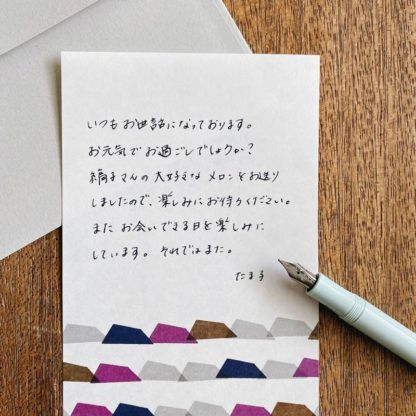 いつもお世話になっております。
お元気でお過ごしでしょうか？
絹子さんの大好きな メロンをお送り
しましたので、楽しみにお待ちください。
また お会いできる日を楽しみに
しています。それではまた。
たま子